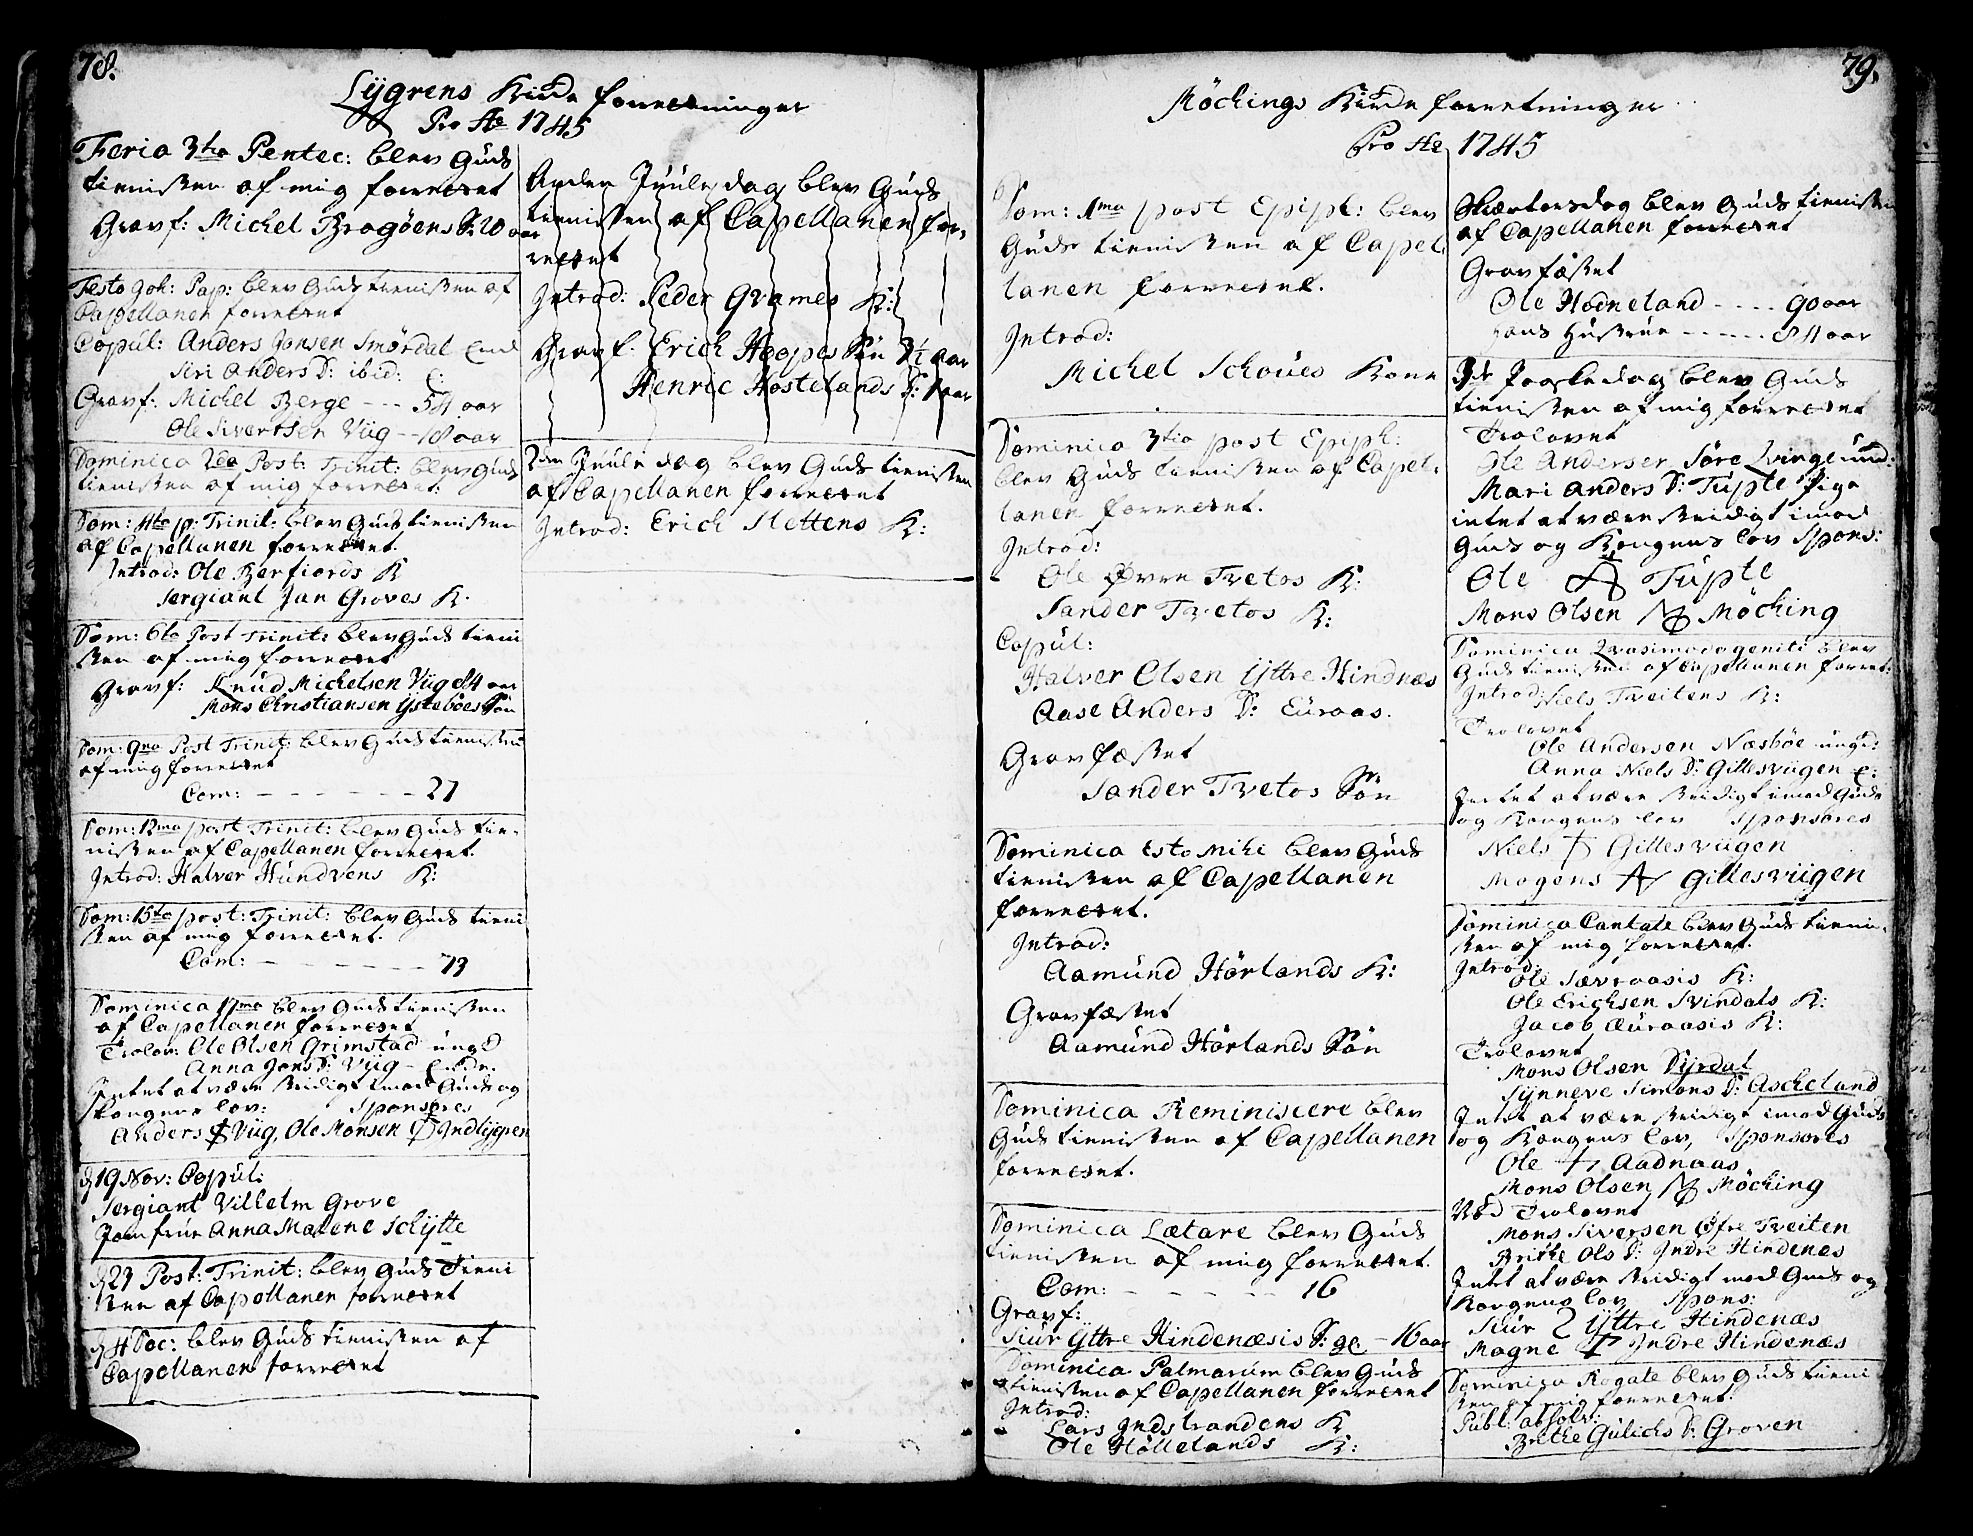 78.
Lÿgrens Kirke forretninger
Pro Ao 1745
Feria 3tia Pentec: blev Guds
tienisten af mig forrettet
Gravf: Michel Bragöens S: 20 aar
Festo Joh: Bap: blev Guds tienisten af
Capellanen forrettet
Copul: Anders Jonsen Smördal Enk
Siri Anders D: ibid: E:
Gravf: Michel Berge --- 54 aar
Ole Sivertsen Viig -- 18 aar
Dominica 2da Post: Trinit: blev Guds
tienisten af mig forrettet.
Dom: 4ta p: Trinit: blev Guds tienisten
af Capellanen forrettet.
Introd: Ole Berfiords K
Sergiant Jan Groves K.
Dom: 6ta Post Trinit: blev Guds tieni
sten af mig forrettet
Gravf: Knud Michelsen Viig 84 aar
Mons Christiansen Ÿsteböes Sön
Dom: 9na Post Trinit: blev Guds tienisten
af mig forrettet
Com: - - - - - - - 27
Dom: 12ma post Trinit: blev Guds tie-
nisten af Capellanen forrettet.
Introd: Halver Hundvens K:
Dom: 15ta post: Trinit: blev Guds tieni
sten af mig forrettet.
Com: - - - - - - 79
Dominica 17ma blev Guds tienisten
af Capellanen forrettet
Trolov: Ole Olsen Grimstad ungd
Anna Jons D: Viig - Enke.
Intet at være stridigt imod Guds og
Kongens lov: Sponsores
Anders Viig, Ole Monsen Indlÿggen
d 19 Nov: Copul:
Sergiant Vilhelm Grove
Jomfrue Anna Malene Schÿtte
d 23 Post: Trinit: blev Guds Tieni
sten af Capellanen forrettet
d 4 Dec: blev Guds tienisten af
Capellanen forrettet
Anden Juule dag blev Guds
tienisten af Capellanen for-
rettet
Introd: Peder Qvames K:
Gravf: Erich Hopes Sön 3½ aar
Henric Hostelands D: 1 aar
2den Juule dag blev Guds tienisten
af Capellanen forrettet
Introd: Erich Slettens K:
79.
Möchings Kirke forretninger
Pro Ao 1745
Dom: 1ma post Epiph: blev
Guds tienisten af Capel
lanen forrettet.
Introd:
Michel Schoues Kone
Dominica 3tia post Epiph:
blev Guds tienisten af Capel:
lanen forrettet.
Introd:
Ole Øvre Tvetos K:
Sander Tvetos K:
Copul:
Halver Olsen Yttre Hindnæs
Aase Anders D: Euraas.
Gravfæstet
Sander Tvetos Sön
Dominica Esto Mihi blev Guds
tienisten af Capellanen
forrettet.
Introd:
Aamund Hörlands K:
Gravfæstet
Aamund Hörlands Sön
Dominica Reminiscere blev
Guds tienisten af Capellanen
forrettet.
Dominica Lætare blev Guds
tienisten af mig forrettet.
Com: - - - - - 16
Gravf:
Siur Yttre Hindenæsis D: - 16 aar
Dominica Palmarum blev Guds
tienisten af Capellanen forrettet
Introd:
Lars Indstrandens K
Ole Höllelands K:
Skiertorsdag blev Guds tienisten
af Capellanen forrettet
Gravfæstet
Ole Hodneland ---- 90 aar
hans Hustrue ----- 84 aar
3die Paaskedag blev Guds
tienisten af mig forrettet
Trolovet
Ole Andersen Söre Qvinge und:
Mari Anders D: Tupte Pige
intet at være stridigt imod
Guds og Kongens lov Spons:
Ole Tupte
Mons Olsen Möching
Dominica Qvasimodogeniti blev
Guds tienisten af Capellanen forret:
Introd: Niels Tveitens K:
Trolovet
Ole Andersen Næsböe ungd:
Anna Niels D: Gillesviigen E:
Intet at være stridigt imod Guds
og Kongens lov Sponsores
Niels Gillesviigen
Mogens Gillesviigen
Dominica Cantate blev Guds tieni-
sten af mig forrettet.
Introd:
Ole Sævraasis K:
Ole Erichsen Svindals K:
Jacob Euraasis K:
Trolovet
Mons Olsen Dÿrdal
Sÿnneve Simons D: Ascheland
Intet at være stridigt imod Guds
og Kongens lov, Sponsores
Ole Aadnaas
Mons Olsen Möching
Trolovet
Mons Siversen Øfre Tveiten
Britte Ols D: Indre Hindenæs
Intet at være stridigt mod Guds og
Kongens lov Spons:
Siur Yttre Hindenæs
Magne Indre Hindenæs
Dominica Rogate blev Guds tieni
sten af mig forrettet.
Publ: absolv:
Brithe Gulichs D: Groven